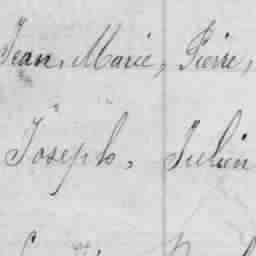 Jean, Marie, Pierre,
Joseph, Julien